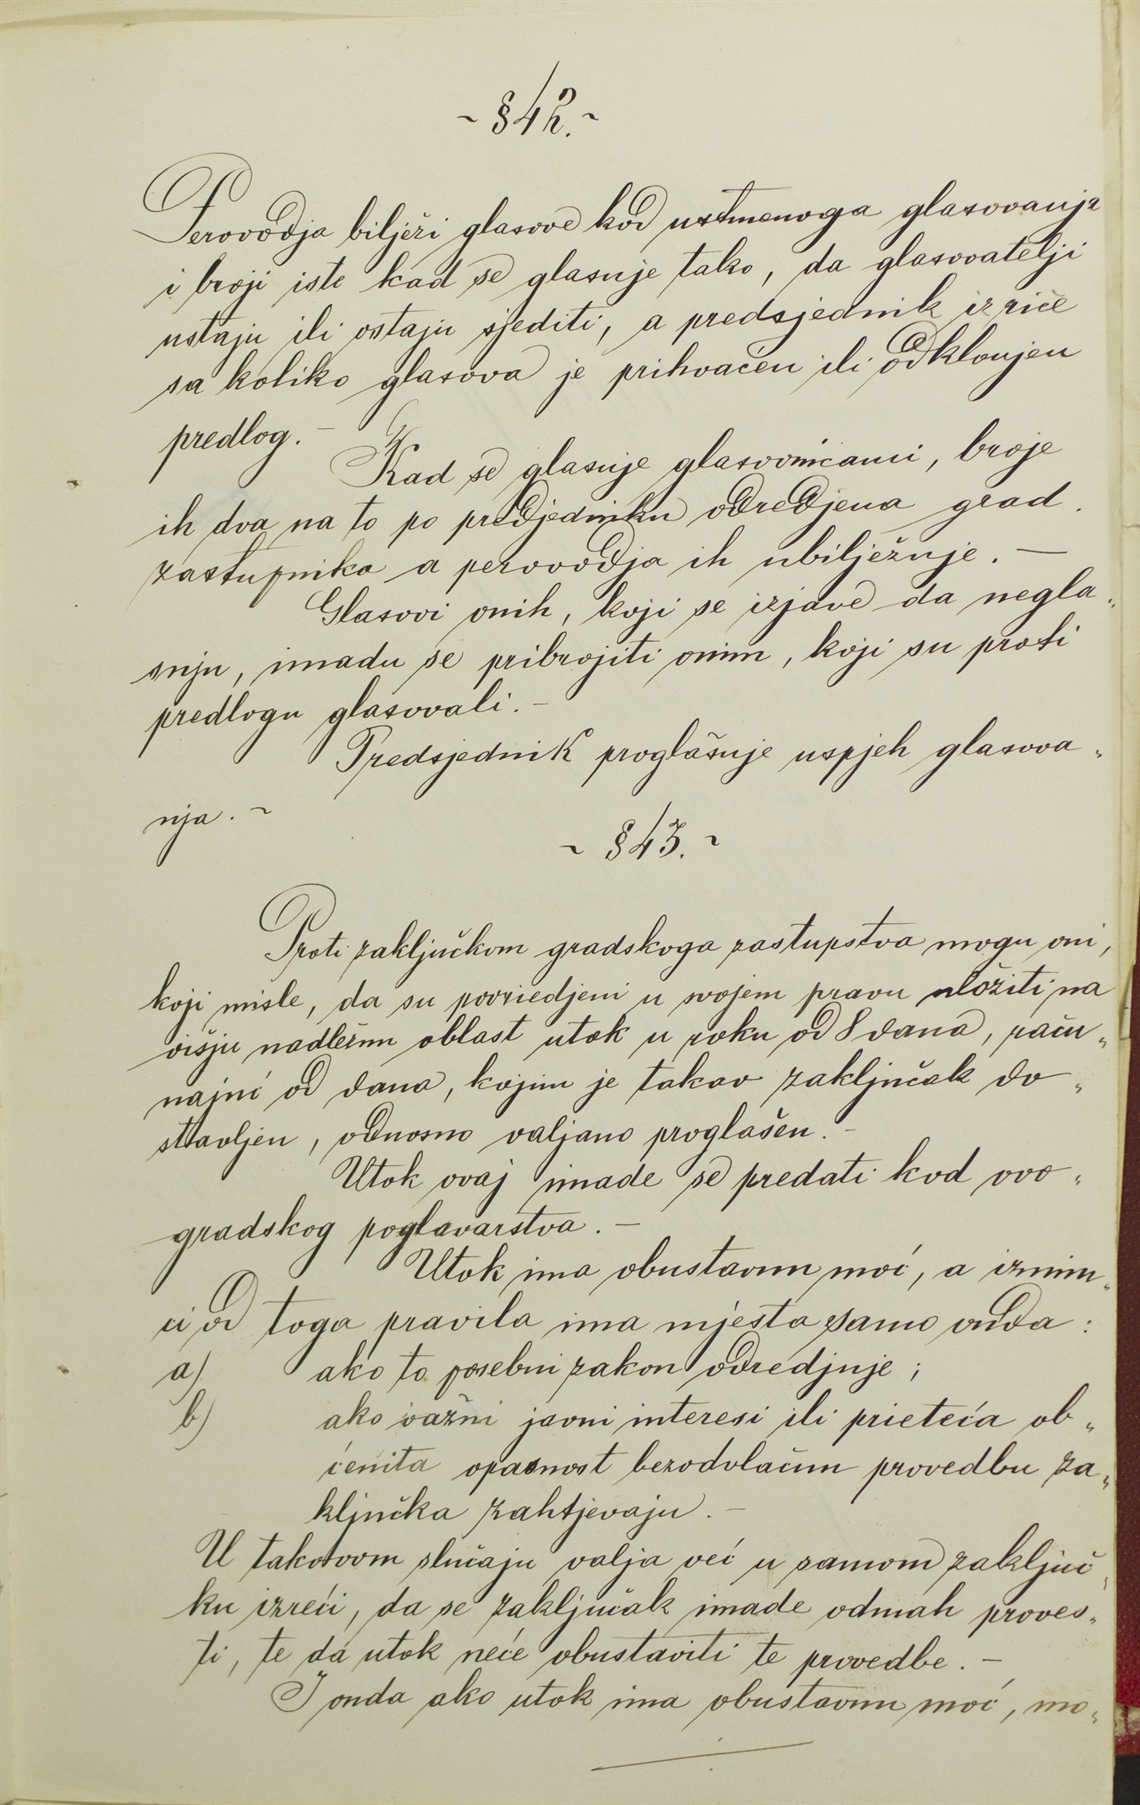 ~ § 42. ~
Perovodja bilježi glasove kod ustmenoga glasovanja
i broji iste kad se glasuje tako, da glasovatelji
ustaju ili ostaju sjediti, a predsjednik izriče
sa koliko glasova je prihvaćen ili odklonjen
predlog. –
Kad se glasuje glasovnicami, broje
ih dva na to po predjedniku odredjena grad.
zastupnika a perovodja ih ubilježuje. —
Glasovi onih, koji se izjave da negla„
suju, imadu se pribrojiti onim, koji su proti
predlogu glasovali. –
Predsjednik proglašuje uspjeh glasova„
nja. ~
~ § 43. ~
Proti zaključkom gradskoga zastupstva mogu oni,
koji misle, da su povriedjeni u svojem pravu uložiti na
višju nadležnu oblast utok u roku od 8 dana, raču„
najuć od dana, kojim je takav zaključak do„
stavljen, odnosno valjano proglašen. –
Utok ovaj imade se predati kod ovo„
gradskog poglavarstva. –
Utok ima obustavnu moć, a iznim„
ci od toga pravila ima mjesta samo onda :
a) ako to posebni zakon odredjuje ;
b) ako važni javni interesi ili prieteća ob„
ćenita opasnost bezodvlačnu provedbu za„
ključka zahtjevaju. –
U takovom slučaju valja već u samom zaključ„
ku izreći, da se zaključak imade odmah proves„
ti, te da utok neće obustaviti te provedbe. –
I onda ako utok ima obustavnu moć, mo„